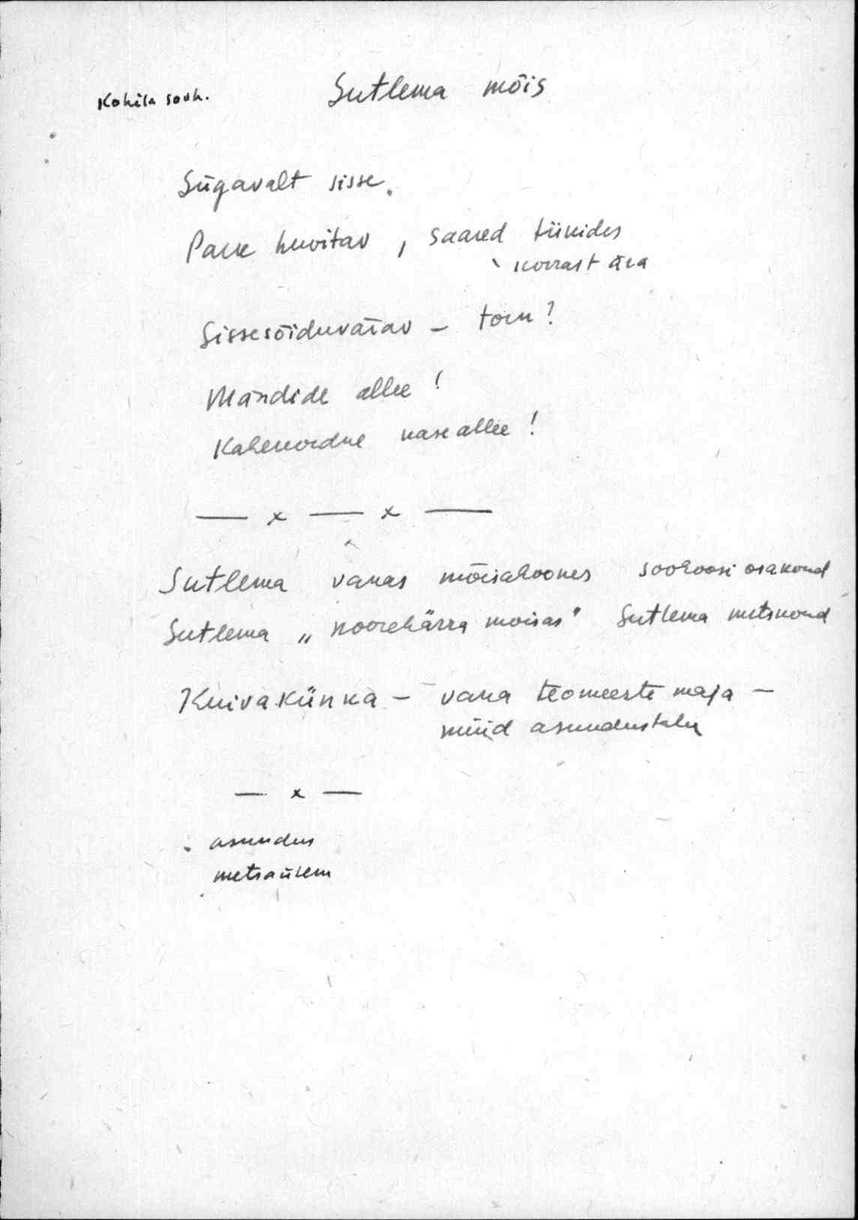 Kohila sovh.
Sutlema mõis
Sügavalt sisse.
Park huvitav, saared tiikides
korrast ära
Sissesõiduvärav – torn?
Mändide allee!
Kahekordne kase allee!
— x — x —
Sutlema vanas mõisahoones sovhoosi osakond
Sutlema „noorehärra moisas" Sutlema metskond
Kuivakünka – vana teomeeste maja –
nüüd asundustalu
— x —
asundus
metsaülem